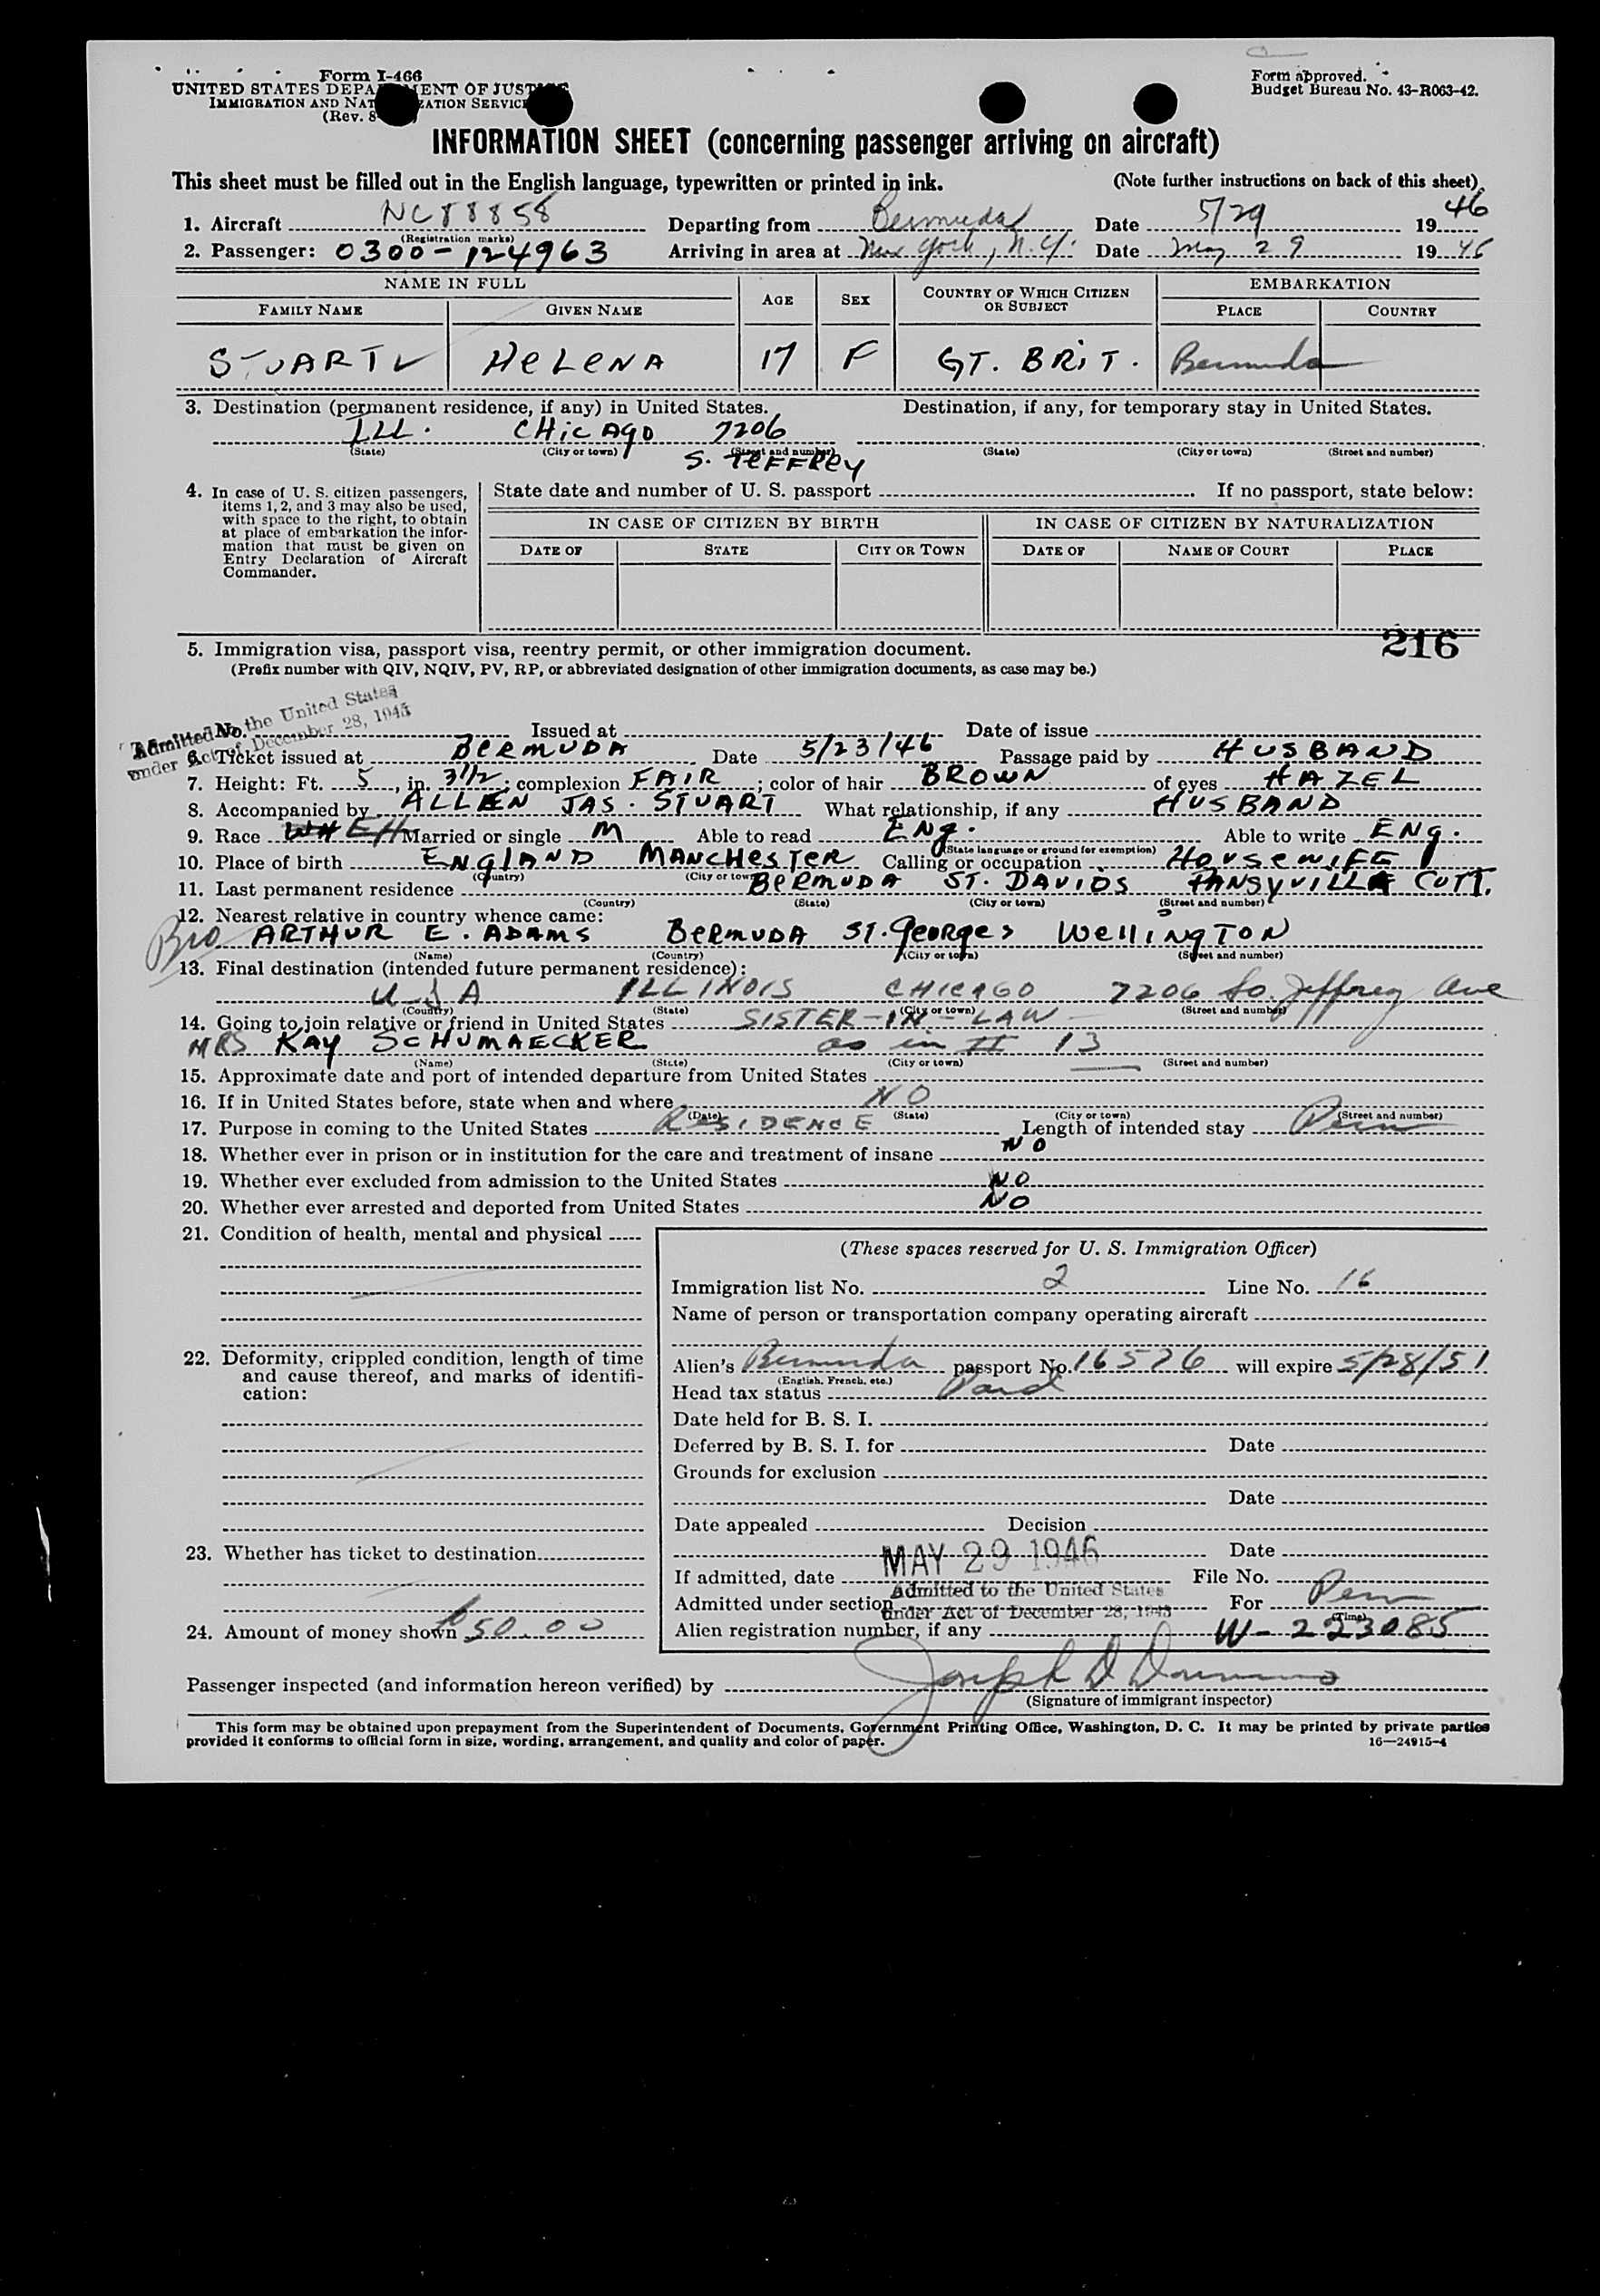 Form I-466
UNITED STATES DEPA ENT OF JUST
IMMIGRATION AND NAT ZATION SERVIC
(Rev. 8
Form approved.
Budget Bureau No. 43-R063-42.
INFORMATION SHEET (concerning passenger arriving on aircraft)
This sheet must be filled out in the English language, typewritten or printed in ink. (Note further instructions on back of this sheet)
1. Aircraft NC88858 Departing from Bermuda Date 5/29 1946
(Registration marks)
2. Passenger: 0300-124963 Arriving in area at New York, N.Y. Date May 29 1946
NAME IN FULL AGE SEX COUNTRY OF WHICH CITIZEN OR SUBJECT EMBARKATION
FAMILY NAME GIVEN NAME PLACE COUNTRY
STUART HELENA 17 F GT. BRIT. Bermuda
3. Destination (permanent residence, if any) in United States. Destination, if any, for temporary stay in United States.
ILL. CHICAGO 7206
(State) (City or town) (Street and number) (State) (City or town) (Street and number)
S. JEFFREY
4. In case of U. S. citizen passengers, items 1, 2, and 3 may also be used, with space to the right, to obtain at place of embarkation the information that must be given on Entry Declaration of Aircraft Commander.
State date and number of U. S. passport If no passport, state below:
IN CASE OF CITIZEN BY BIRTH IN CASE OF CITIZEN BY NATURALIZATION
DATE OF STATE CITY OR TOWN DATE OF NAME OF COURT PLACE
216
5. Immigration visa, passport visa, reentry permit, or other immigration document.
(Prefix number with QIV, NQIV, PV, RP, or abbreviated designation of other immigration documents, as case may be.)
Admitted to the United States
under Act of December 28, 1945
No. Issued at Date of issue
6. Ticket issued at BERMUDA Date 5/23/46 Passage paid by HUSBAND
7. Height: Ft. 5, in. 3 1/2; complexion FAIR; color of hair BROWN of eyes HAZEL
8. Accompanied by ALLEN JAS. STUART What relationship, if any HUSBAND
9. Race Married or single M Able to read ENG. Able to write ENG.
(State language or ground for exemption)
10. Place of birth ENGLAND MANCHESTER Calling or occupation HOUSEWIFE
(Country) (City or town)
11. Last permanent residence BERMUDA ST. DAVIDS PANSYVILLA COTT.
(Country) (State) (City or town) (Street and number)
12. Nearest relative in country whence came:
Bro ARTHUR E. ADAMS BERMUDA ST. GEORGES WELLINGTON
(Name) (Country) (City or town) (Street and number)
13. Final destination (intended future permanent residence):
USA ILLINOIS CHICAGO 7206 So. Jeffrey Ave
(Country) (State) (City or town) (Street and number)
14. Going to join relative or friend in United States SISTER-IN-LAW
MRS KAY SCHUMAECKER as in 13
(Name) (State) (City or town) (Street and number)
15. Approximate date and port of intended departure from United States
16. If in United States before, state when and where NO
(Date) (State) (City or town) (Street and number)
17. Purpose in coming to the United States RESIDENCE Length of intended stay Perm
18. Whether ever in prison or in institution for the care and treatment of insane NO
19. Whether ever excluded from admission to the United States NO
20. Whether ever arrested and deported from United States NO
21. Condition of health, mental and physical
22. Deformity, crippled condition, length of time and cause thereof, and marks of identification:
23. Whether has ticket to destination
24. Amount of money shown $50.00
(These spaces reserved for U. S. Immigration Officer)
Immigration list No. 2 Line No. 16
Name of person or transportation company operating aircraft
Alien's Bermuda passport No. 16576 will expire 5/28/51
(English, French, etc.)
Head tax status Paid
Date held for B. S. I.
Deferred by B. S. I. for Date
Grounds for exclusion
Date
Date appealed Decision
Date
If admitted, date MAY 29 1946 File No.
Admitted under section Admitted to the United States under Act of December 28, 1945 For Perm
(Time)
Alien registration number, if any W-223085
Passenger inspected (and information hereon verified) by Joseph D
(Signature of immigrant inspector)
This form may be obtained upon prepayment from the Superintendent of Documents, Government Printing Office, Washington, D. C. It may be printed by private parties
provided it conforms to official form in size, wording, arrangement, and quality and color of paper. 16—24915-4